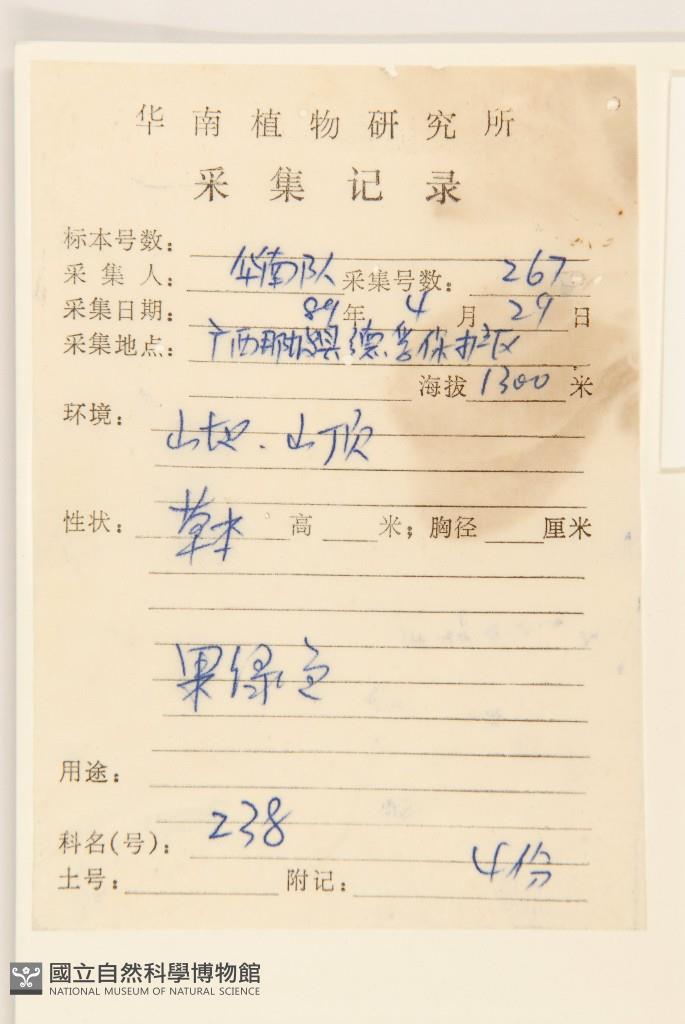 华南植物研究所
采集记录
标本号数：
采集人： 华南队 采集号数： 267
采集日期： 89年 4 月 29 日
采集地点： 广西那坡县德孚保护区
海拔 1300 米
环境： 山地．山顶
性状： 草本 高 米；胸径 厘米
果绿色
用途：
科名(号)： 238
土号： 附记： 4份
國立自然科學博物館
NATIONAL MUSEUM OF NATURAL SCIENCE